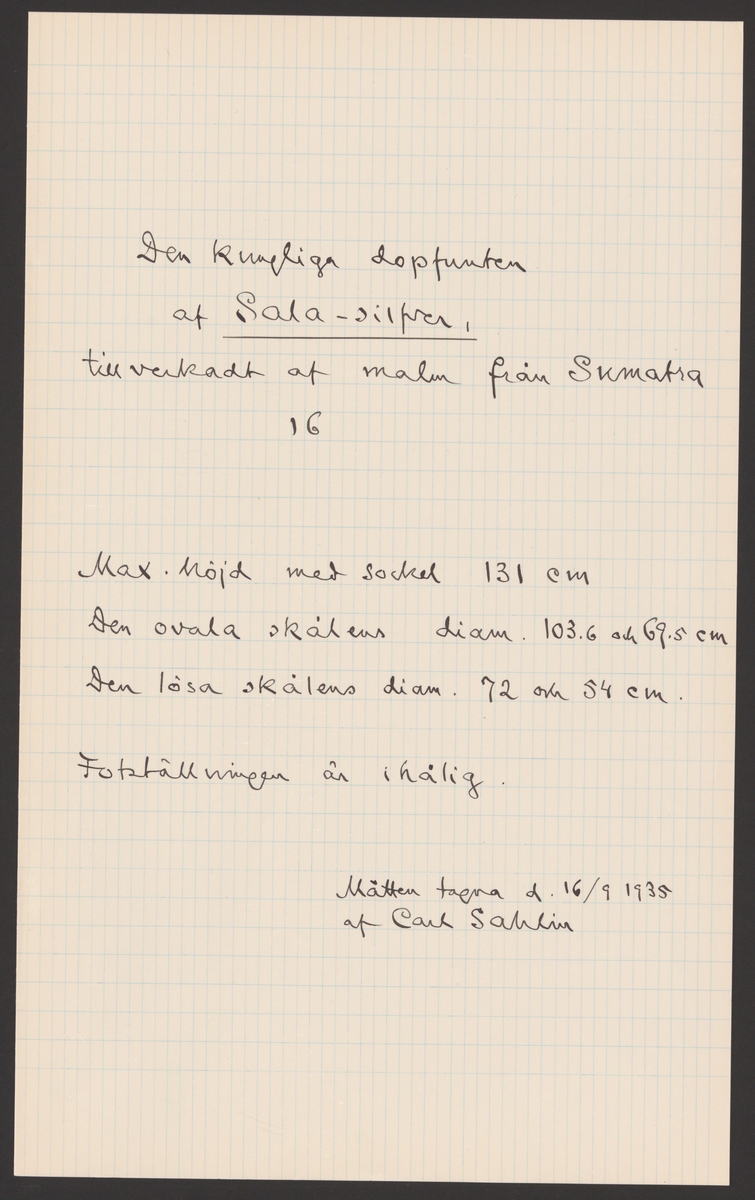 Den kungliga dopfunten
af Sala-silfver,
tillverkadt af malm från Sumatra
16
Max. höjd med sockel 131 cm
Den ovala skålens diam. 103.6 och 69.5 cm
Den lösa skålens diam. 72 och 54 cm.
Fotställningen är ihålig.
Måtten tagna d. 16/9 1935
af Carl Sahlin